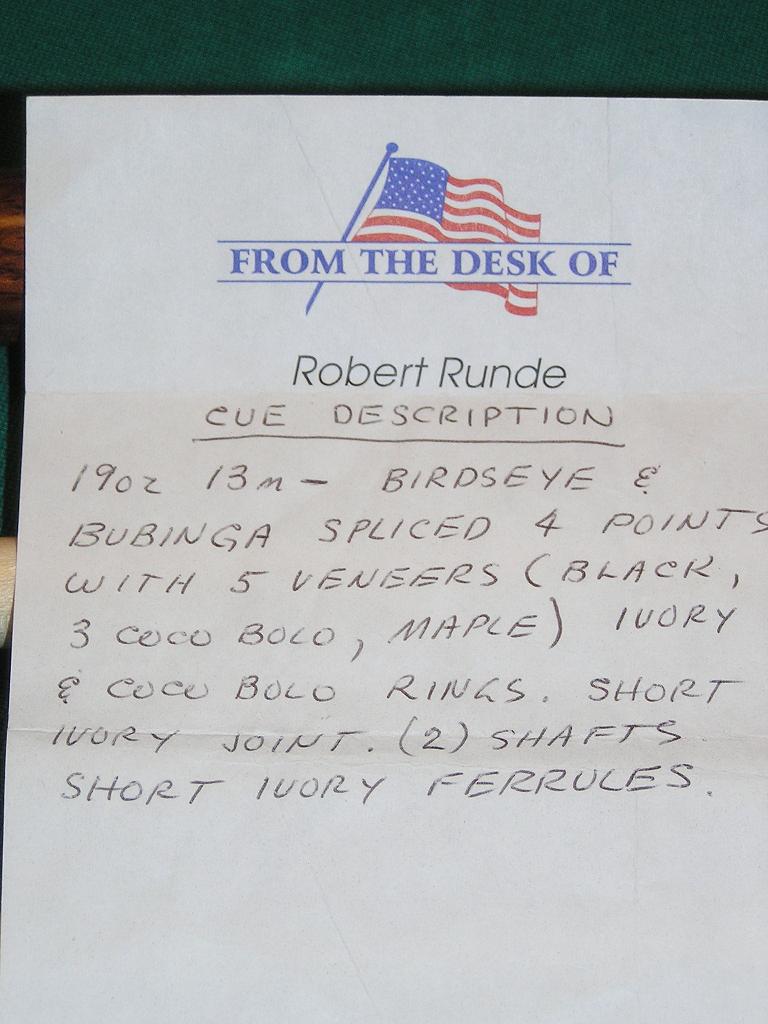 FROM THE DESK OF
Robert Runde
CUE DESCRIPTION
19oz 13m - BIRDSEYE &
BUBINGA SPLICED 4 POINTS
WITH 5 VENEERS (BLACK,
3 COCO BOLO, MAPLE) IVORY
& COCO BOLO RINGS. SHORT
IVORY JOINT. (2) SHAFTS
SHORT IVORY FERRULES.